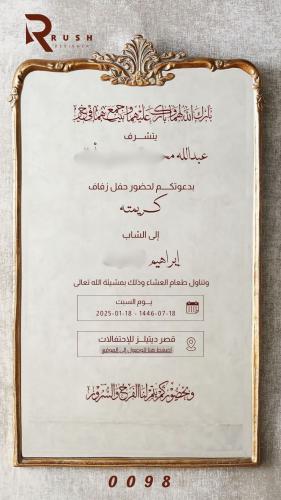 RUSH
DESIGNER
بارك الله لهما وبارك عليهما وجمع بينهما في خير
يتشرف
عبدالله
بدعوتكم لحضور حفل زفاف
كريمته
إلى الشاب
إبراهيم
وتناول طعام العشاء وذلك بمشيئة الله تعالى
يوم السبت
2025-01-18 - 1446-07-18
قصر ديتيلز للإحتفالات
اضغط هنا للوصول إلى الموقع
وبحضوركم يتم لنا الفرح والسرور
0098